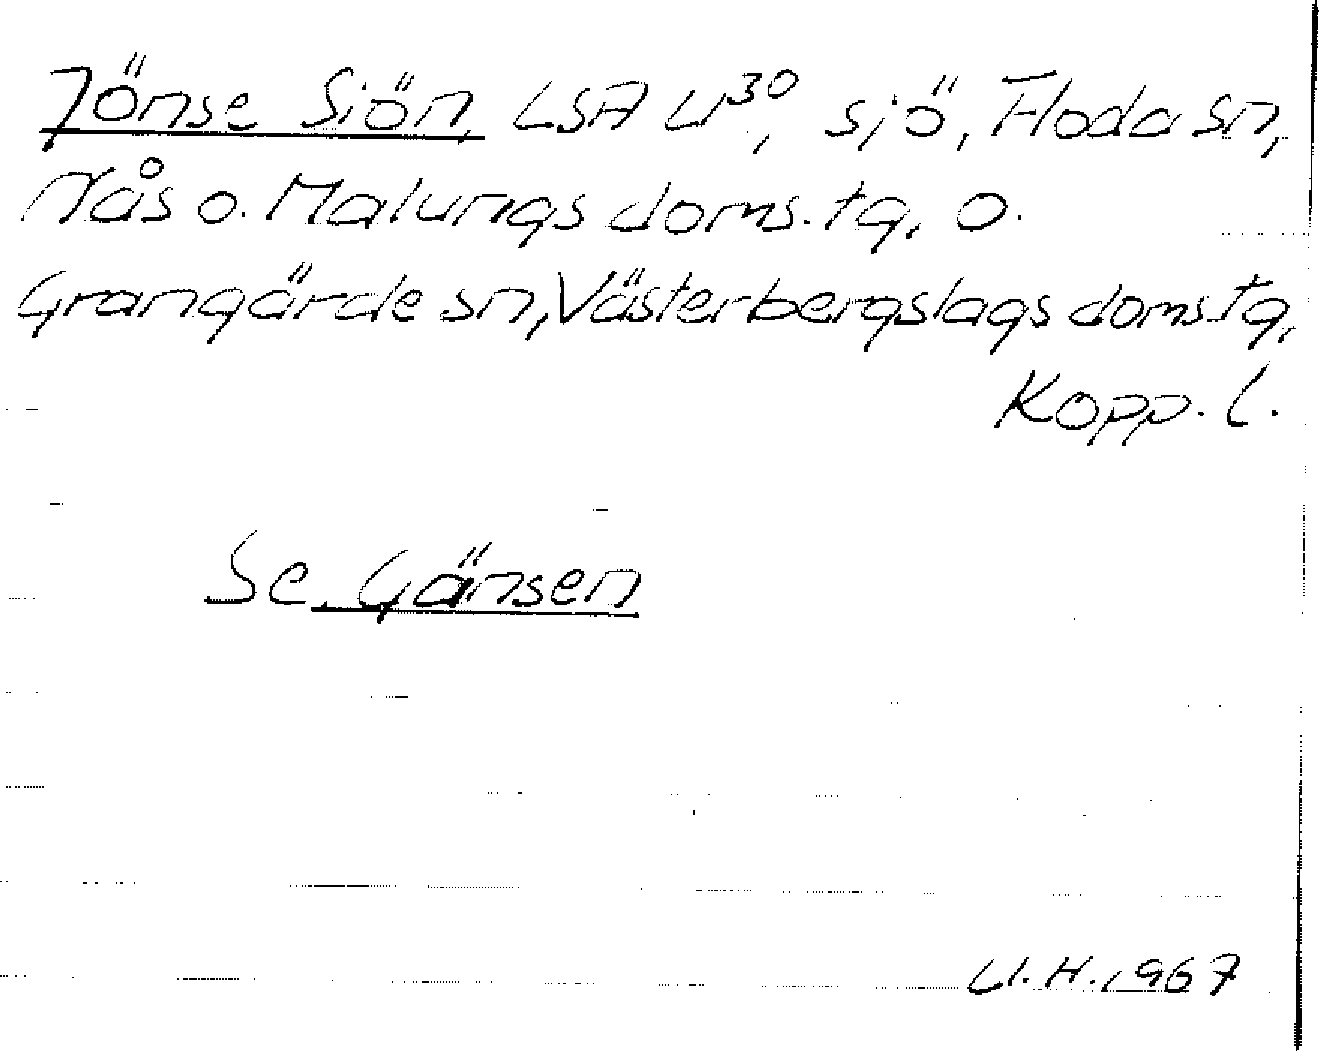 Jönse Siön, LSA U³⁰, sjö, Floda sn,
Nås o. Malungs doms.tg, o.
Grangärde sn, Västerbergslags doms.tg,
Kopp. l.
Se Gänsen
U.H. 1967